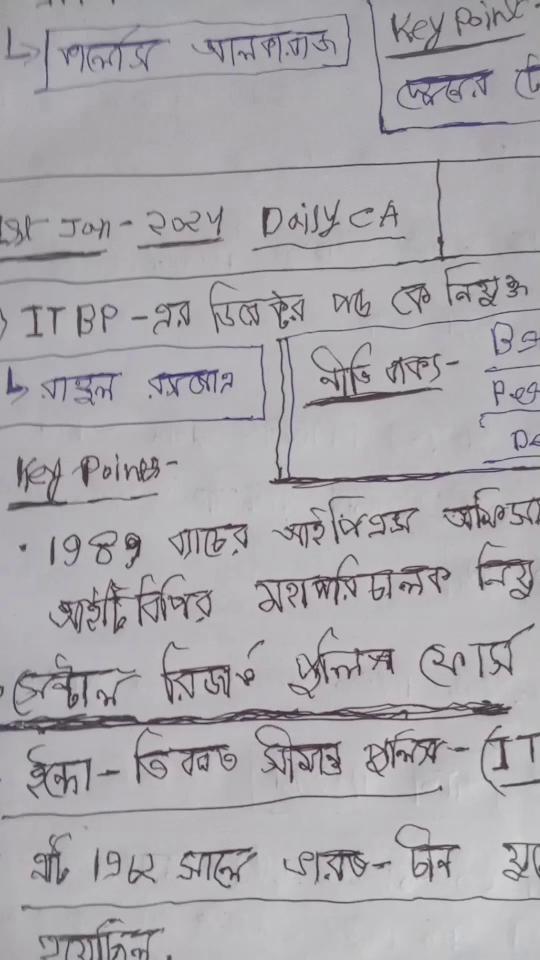 কার্লোস আলকারাজ
Key Point
1st Jan - ২০২৪ Daily CA
ITBP - এর ডিরেক্টর পদে কে নিযুক্ত
রাহুল রসগোত্র
নীতি বাক্য -
Key Points -
• 1989 ব্যাচের আইপিএস
আইটিবিপির মহাপরিচালক
সেন্ট্রাল রিজার্ভ পুলিশ ফোর্স
ইন্দো - তিব্বত সীমান্ত পুলিশ - (IT
এটি ১৯৬২ সালে ভারত - চীন
হয়েছিল.